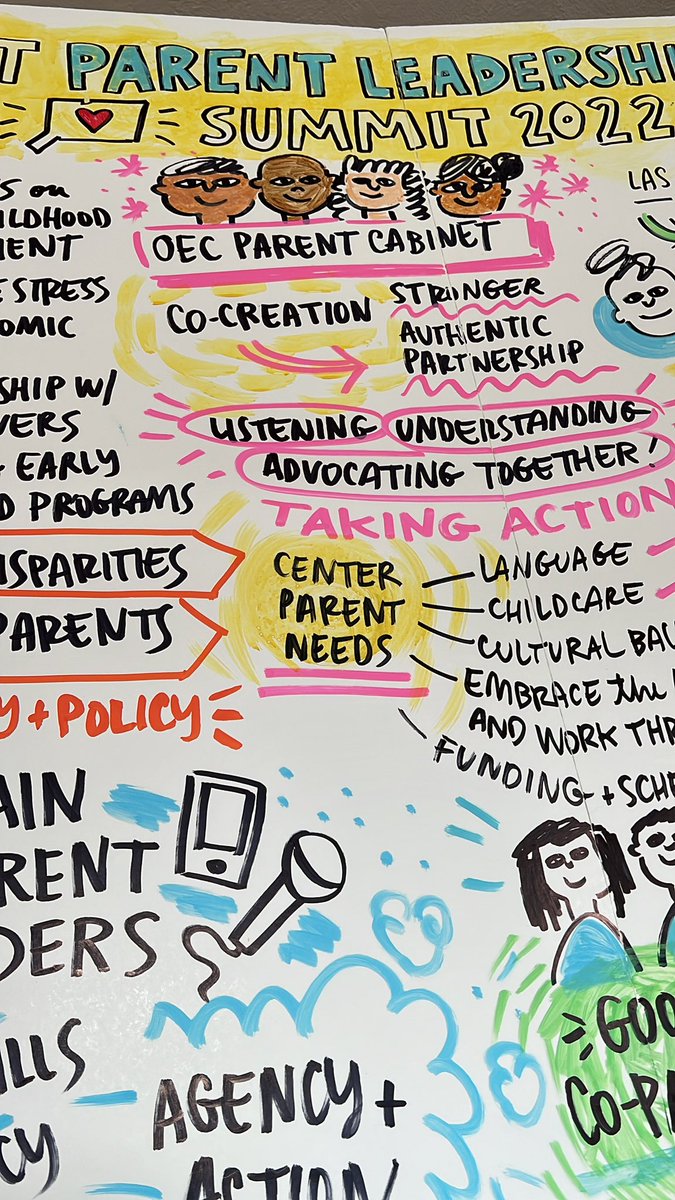 PARENT LEADERSHI
SUMMIT 2022
on
ILDHOOD
MENT
STRESS
OMIC
SHIP W/
VERS
EARLY
D PROGRAMS
ISPARITIES
PARENTS
Y + POLICY
OEC PARENT CABINET
CO-CREATION
STRONGER
AUTHENTIC
PARTNERSHIP
LISTENING UNDERSTANDING
ADVOCATING TOGETHER!
TAKING ACTION
CENTER
PARENT
NEEDS
LANGUAGE
CHILDCARE
CULTURAL
EMBRACE the
AND WORK THR
FUNDING + SCHE
LAS
AIN
RENT
DERS
ILLS
CY
AGENCY +
ACTION
GOO
CO-P